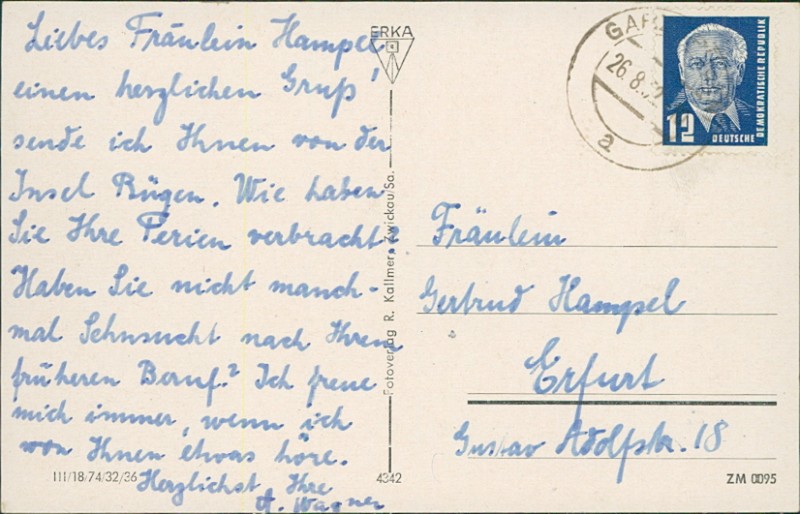 Liebes Fräulein Hampel!
einen herzlichen Gruß
sende ich Ihnen von der
Insel Rügen. Wie haben
Sie Ihre Ferien verbracht?
Haben Sie nicht manch-
mal Sehnsucht nach Ihrem
früheren Beruf? Ich freue
mich immer, wenn ich
von Ihnen etwas höre.
Herzlichst Ihre
A. Wagner
III/18/74/32/36
ERKA
Fotoverlag R. Kallmer, Zwickau/Sa.
4342
26.8.
a
12
DEUTSCHE
DEMOKRATISCHE REPUBLIK
Fräulein
Gertrud Hampel
Erfurt
Gustav Adolfstr. 18
ZM 0095